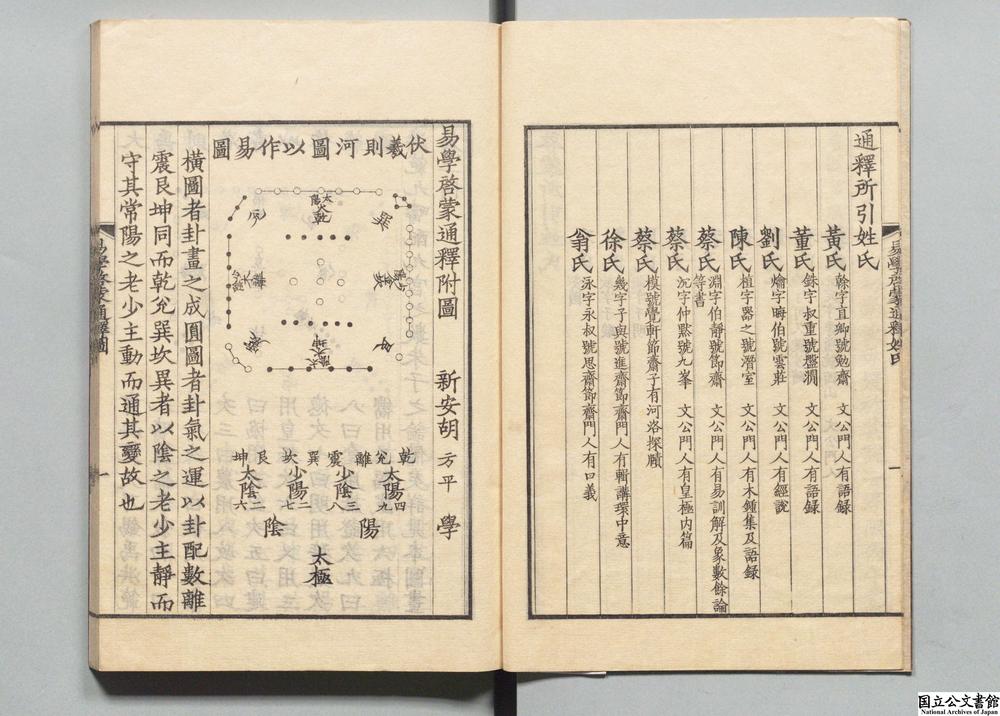 通釋所引姓氏
黃氏 榦字直卿號勉齋 文公門人有語録
董氏 銖字叔重號盤澗 文公門人有語録
劉氏 爚字晦伯號雲莊 文公門人有經說
陳氏 植字器之號潛室 文公門人有木鍾集及語録
蔡氏 淵字伯靜號節齋 文公門人有易訓解及象數餘論等書
蔡氏 沉字仲黙號九峯 文公門人有皇極内篇
蔡氏 模號覺軒節齋子有河洛探賾
徐氏 幾字子與號進齋節齋門人有輯講環中意
翁氏 泳字永叔號思齋節齋門人有口義
易學啓蒙通釋姓氏
一
易學啓蒙通釋附圖 新安胡 方平 學
伏羲則河圖以作易圖
太陽
乾
巽
坤
乾兊離震巽坎艮坤
太陽 四九
少陰 三八
少陽 二七
太陰 一六
陽
陰
太極
橫圖者卦畫之成圓圖者卦氣之運以卦配數離
震艮坤同而乾兊巽坎異者以陰之老少主靜而
守其常陽之老少主動而通其變故也
易學啓蒙通釋圖
一
国立公文書館
National Archives of Japan